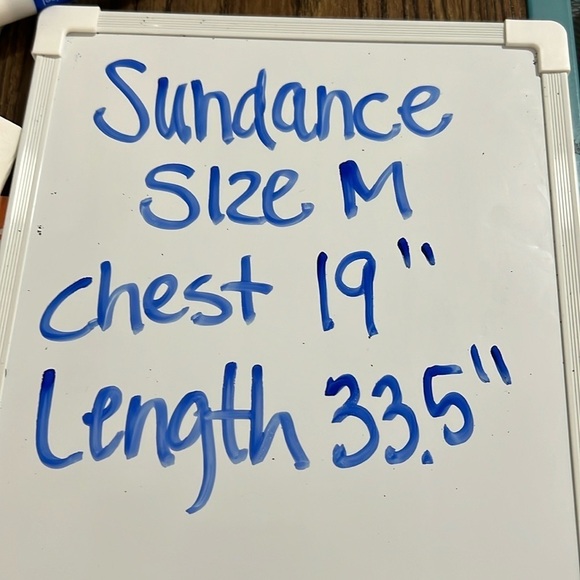 Sundance
Size M
Chest 19"
Length 33.5"